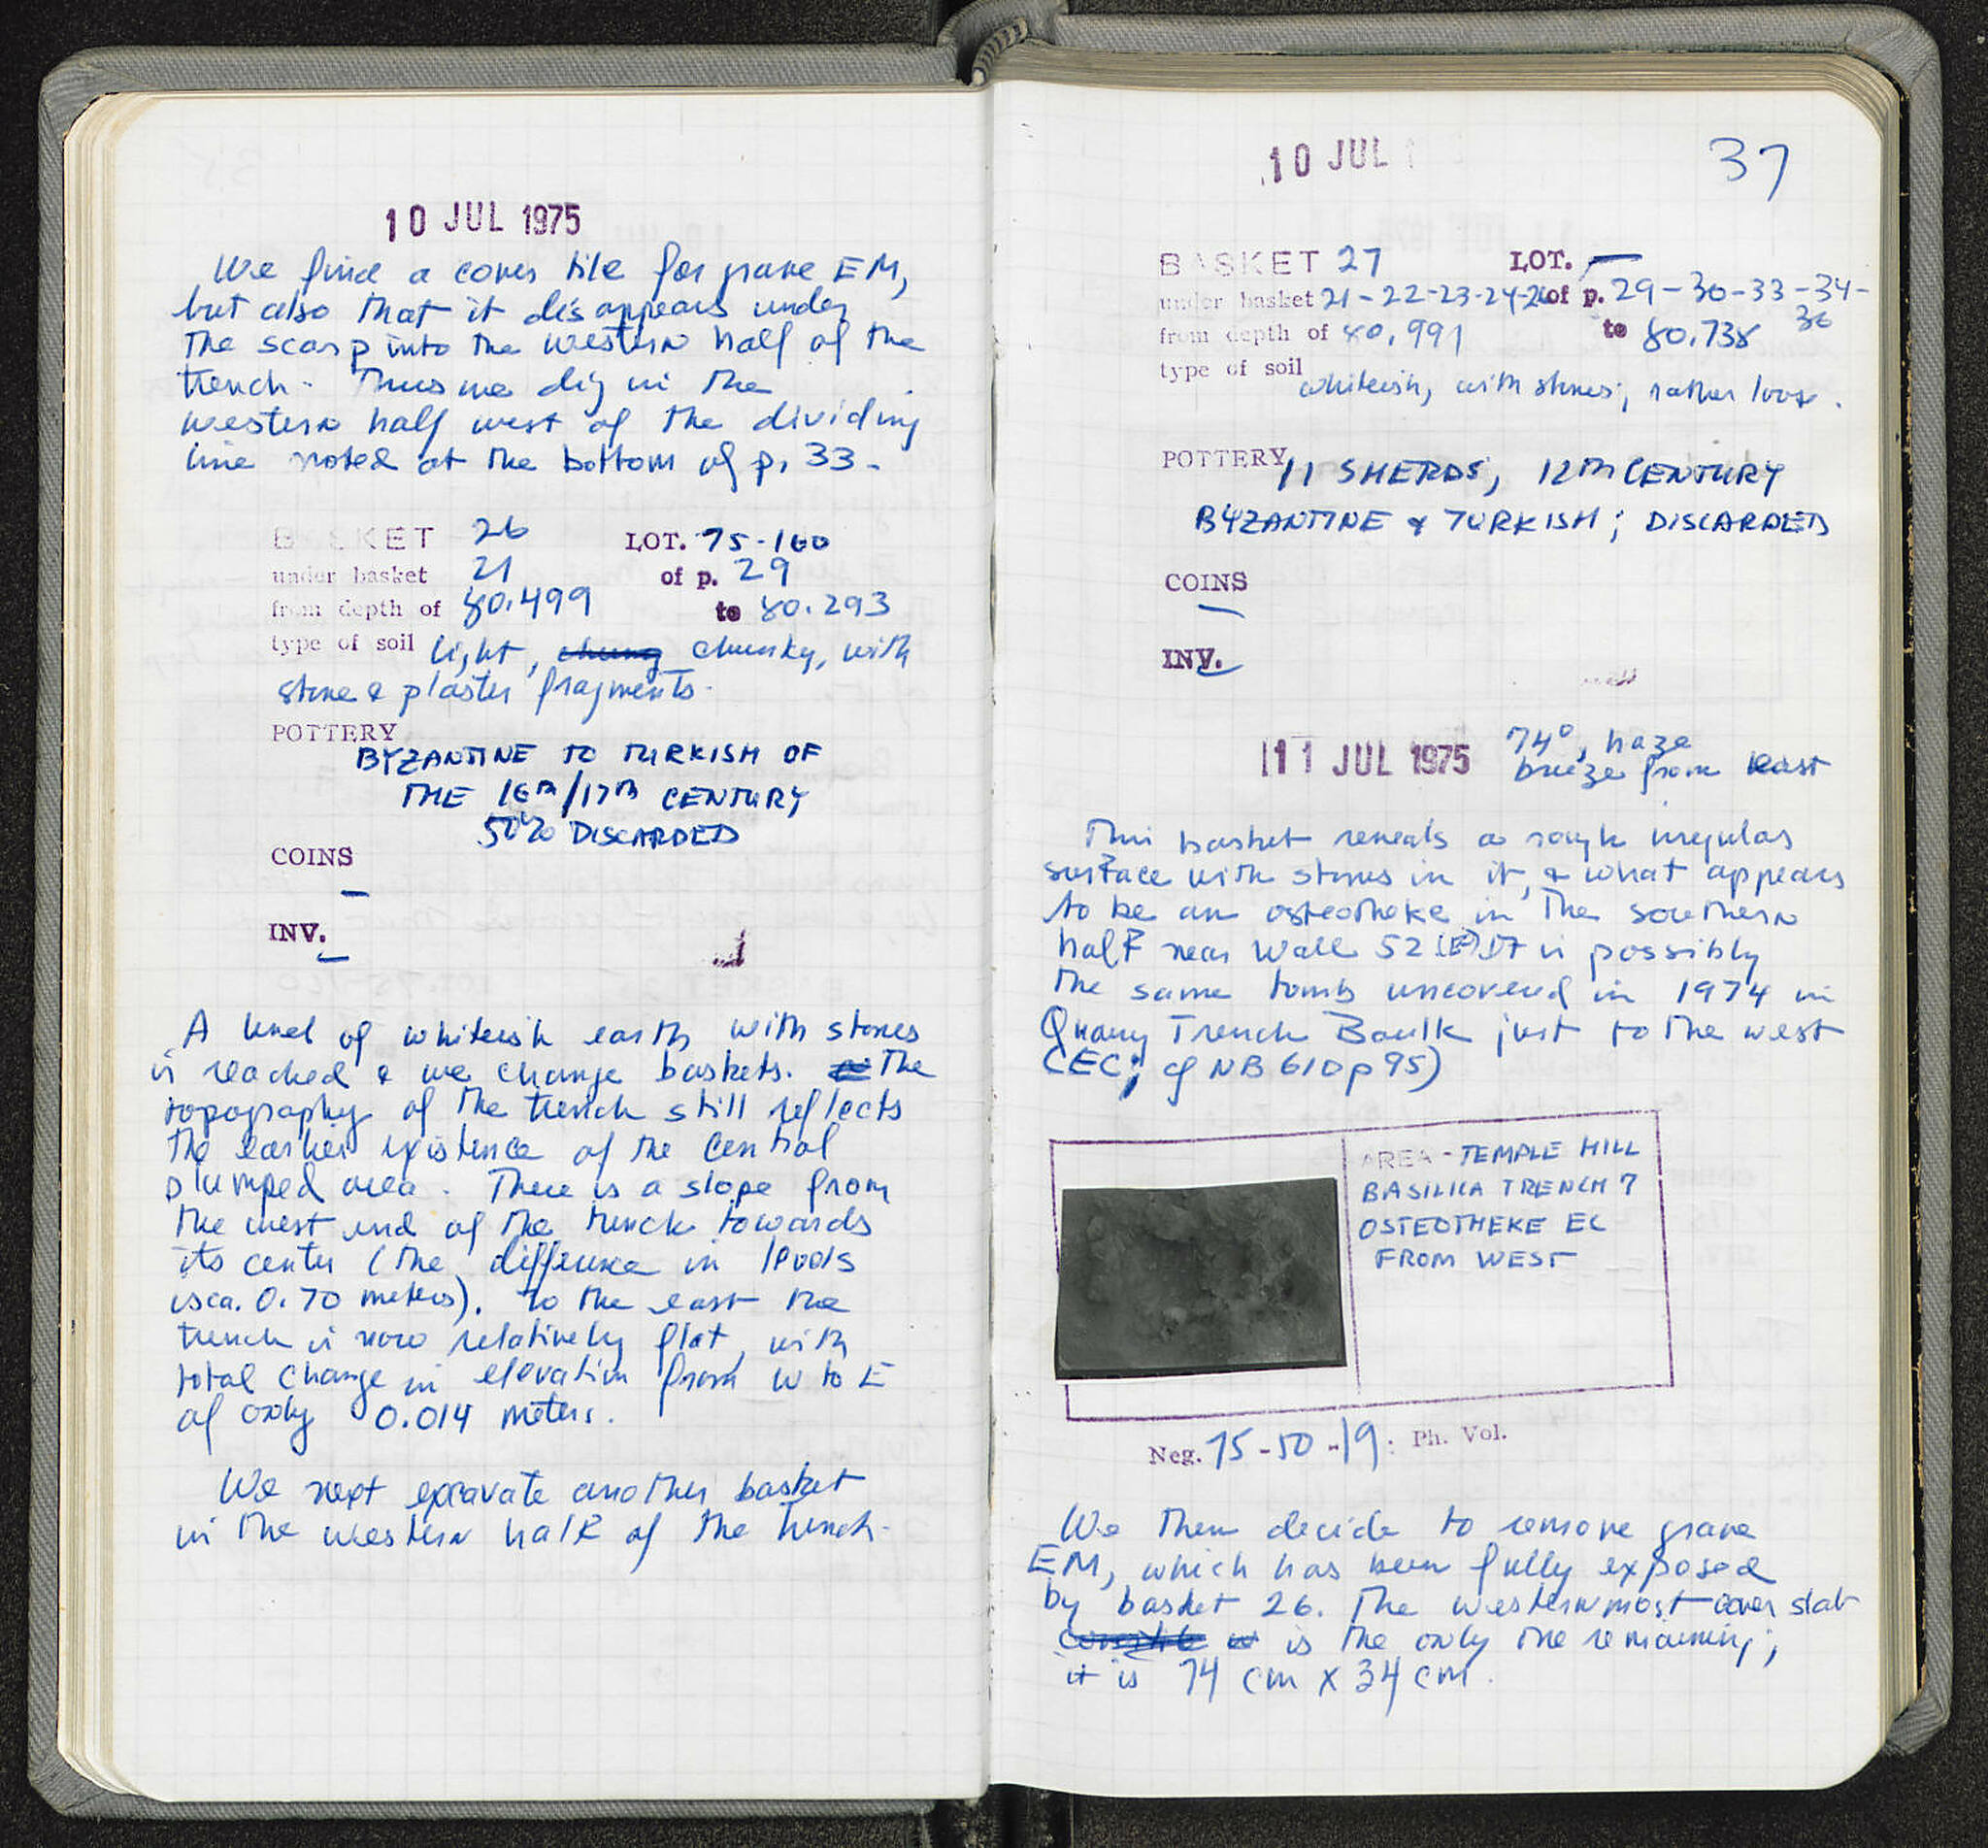 10 JUL 1975
We find a cover tile for grave EM,
but also that it disappears under
the scarp into the western half of the
trench. Thus we dig in the
western half west of the dividing
line noted at the bottom of p. 33.
BASKET 26 LOT. 75-160
under basket 21 of p. 29
from depth of 80.499 to 80.293
type of soil light, chunky, with
stone & plaster fragments.
POTTERY
BYZANTINE TO TURKISH OF
THE 16TH/17TH CENTURY
50% DISCARDED
COINS
—
INV.
—
A level of whiteish earth with stones
is reached & we change baskets. The
topography of the trench still reflects
the earlier existence of the central
slumped area. There is a slope from
the west end of the trench towards
its center (the difference in levels
is ca. 0.70 meters). To the east the
trench is now relatively flat, with
total change in elevation from W to E
of only 0.014 meters.
We next excavate another basket
in the western half of the trench.
10 JUL
37
BASKET 27 LOT. —
under basket 21-22-23-24-26 of p. 29-30-33-34-
36
from depth of 80.991 to 80.738
type of soil whiteish, with stones, rather loose.
POTTERY 11 SHERDS, 12TH CENTURY
BYZANTINE & TURKISH; DISCARDED
COINS
—
INV.
—
11 JUL 1975 74°, haze
breeze from east
This basket reveals a rough irregular
surface with stones in it, & what appears
to be an osteotheke in the southern
half near Wall 52 It is possibly
the same tomb uncovered in 1974 in
Quarry Trench Baulk just to the west
(EC; cf NB 610 p 95)
AREA - TEMPLE HILL
BASILICA TRENCH 7
OSTEOTHEKE EC
FROM WEST
Neg. 75-50-19: Ph. Vol.
We then decide to remove grave
EM, which has been fully exposed
by basket 26. The westernmost cover slab
is the only one remaining;
it is 74 cm x 34 cm.